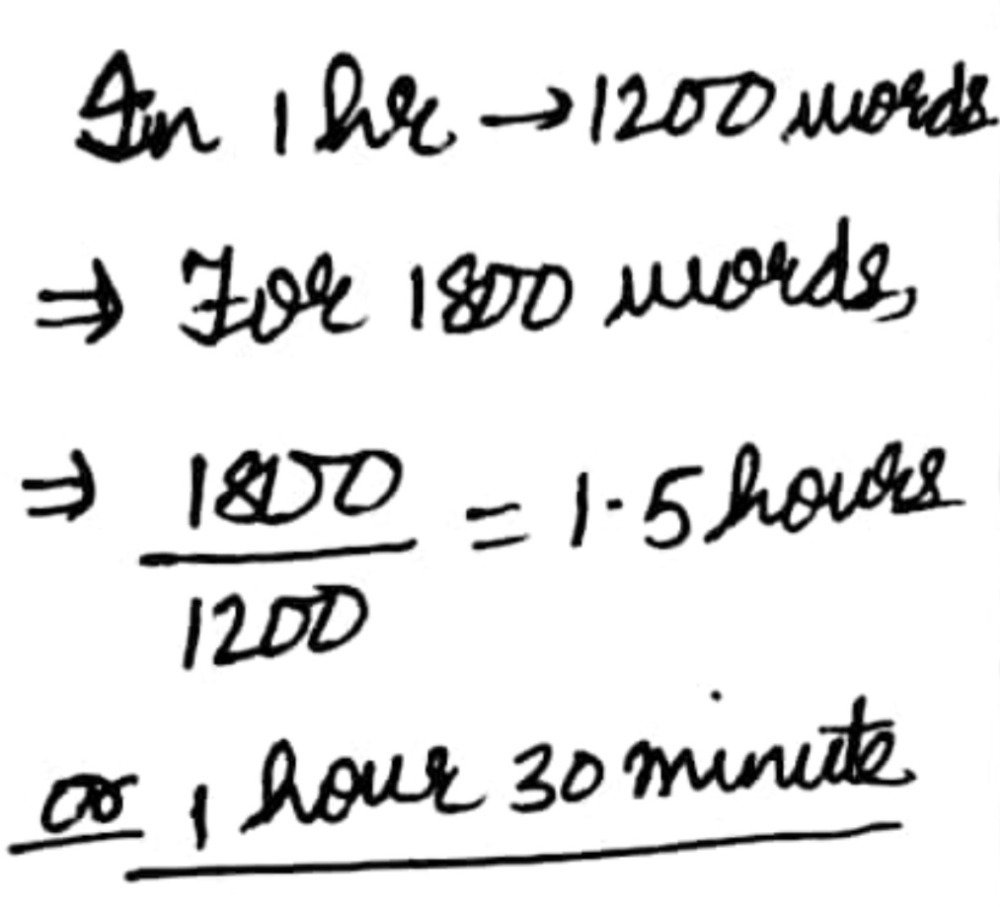 In 1 hr → 1200 words
⇒ For 1800 words,
⇒ 1800 = 1.5 hours
1200
or 1 hour 30 minute